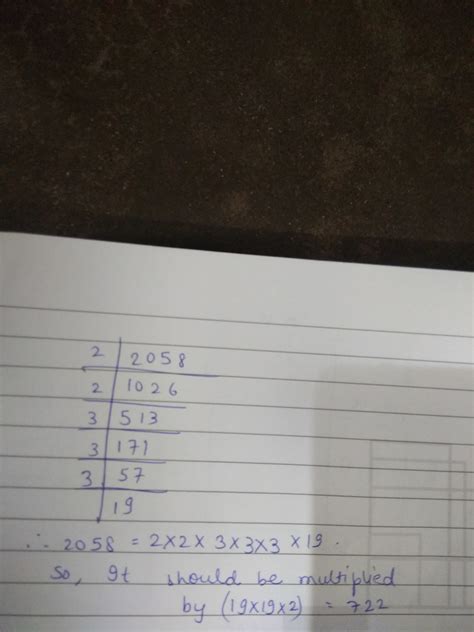 2 | 2058
2 | 1026
3 | 513
3 | 171
3 | 57
| 19
∴ 2058 = 2×2× 3×3×3 ×19.
So, It should be multiplied
by (19×19×2) = 722